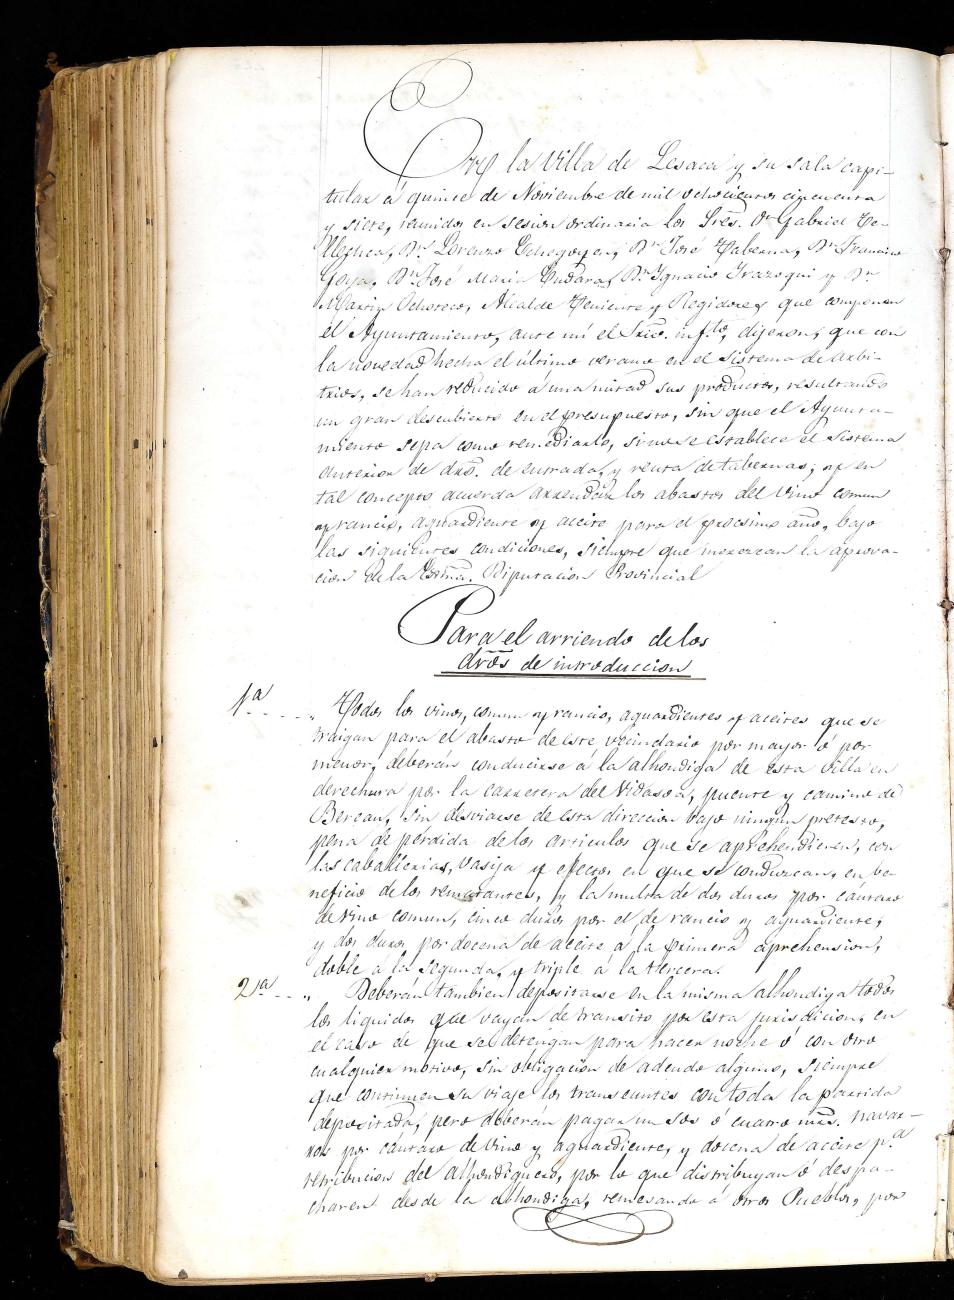 En la Villa de Lesaca y su sala capi-
tular á quince de Noviembre de mil ochocientos cincuenta
y siete, reunidos en sesion ordinaria los Srẽs. Dn. Gabriel Te-
llechea, Dn. Lorenzo Echegoyen, Dn. José Taberna, Dn. Francisco
Goya, Dn. José Maria Endara, Dn. Ignacio Irazoqui y Dn.
Martin Ochoteco, Alcalde Teniente y Regidores que componen
el Ayuntamiento, ante mi el Srio. inf.to, dijeron; que con
la novedad hecha el último verano en el Sistema de Arbi-
trios, se han reducido a una mitad sus productos, resultando
un gran descubierto en el presupuesto, sin que el Ayunta-
miento sepa como remediarlo, sino se establece el Sistema
anterior de drõs. de entrada, y renta de tabernas; y en
tal concepto acuerda arrendar los abastos del vino comun
y rancio, aguardiente y aceite para el procsimo año, bajo
las siguientes condiciones, siempre que merezcan la aprova-
cion de la Excma. Diputacion Provincial
Para el arriendo de los
drõs de introduccion
1.a .... „ Todos los vinos, comun y rancio, aguardientes y aceites que se
traigan para el abasto de este vecindario por mayor ó por
menor, deberán conducirse á la alhondiga de esta Villa en
derechura por la carretera del Vidasoa, puente y camino de
Berean, sin desviarse de esta direccion bajo ningun pretesto,
pena de pérdida de los articulos que se aprehendieren, con
las caballerias, vasija y efectos en que se conduzcan, en be-
neficio de los rematantes, y la multa de dos duros por cántaro
de vino comun, cinco duros por el de rancio y aguardiente,
y dos duros por docena de aceite á la primera aprehension,
doble á la segunda, y triple á la tercera.
2.a ... „ Deberán tambien depositarse en la misma alhondiga todos
los liquidos que vayan de transito por esta jurisdicion, en
el caso de que se detengan para hacer noche ó con otro
cualquier motivo, sin obligacion de adeudo alguno, siempre
que continuen su viaje los transeuntes con toda la partida
depositada, pero deberán pagar un sos ó cuatro mrs. navar-
ros por cántaro de vino y aguardiente, y docena de aceite p.a
retribucion del alhondiguero, por lo que distribuyan ó despa-
charen desde la alhondiga, remesando á otros Pueblos, por